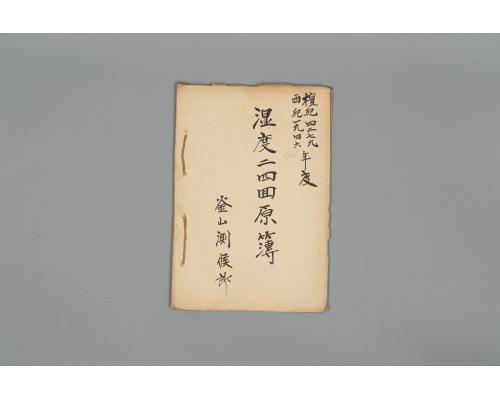 檀紀四二七九
西紀一九四六
年度
湿度二四回原簿
釜山測候所